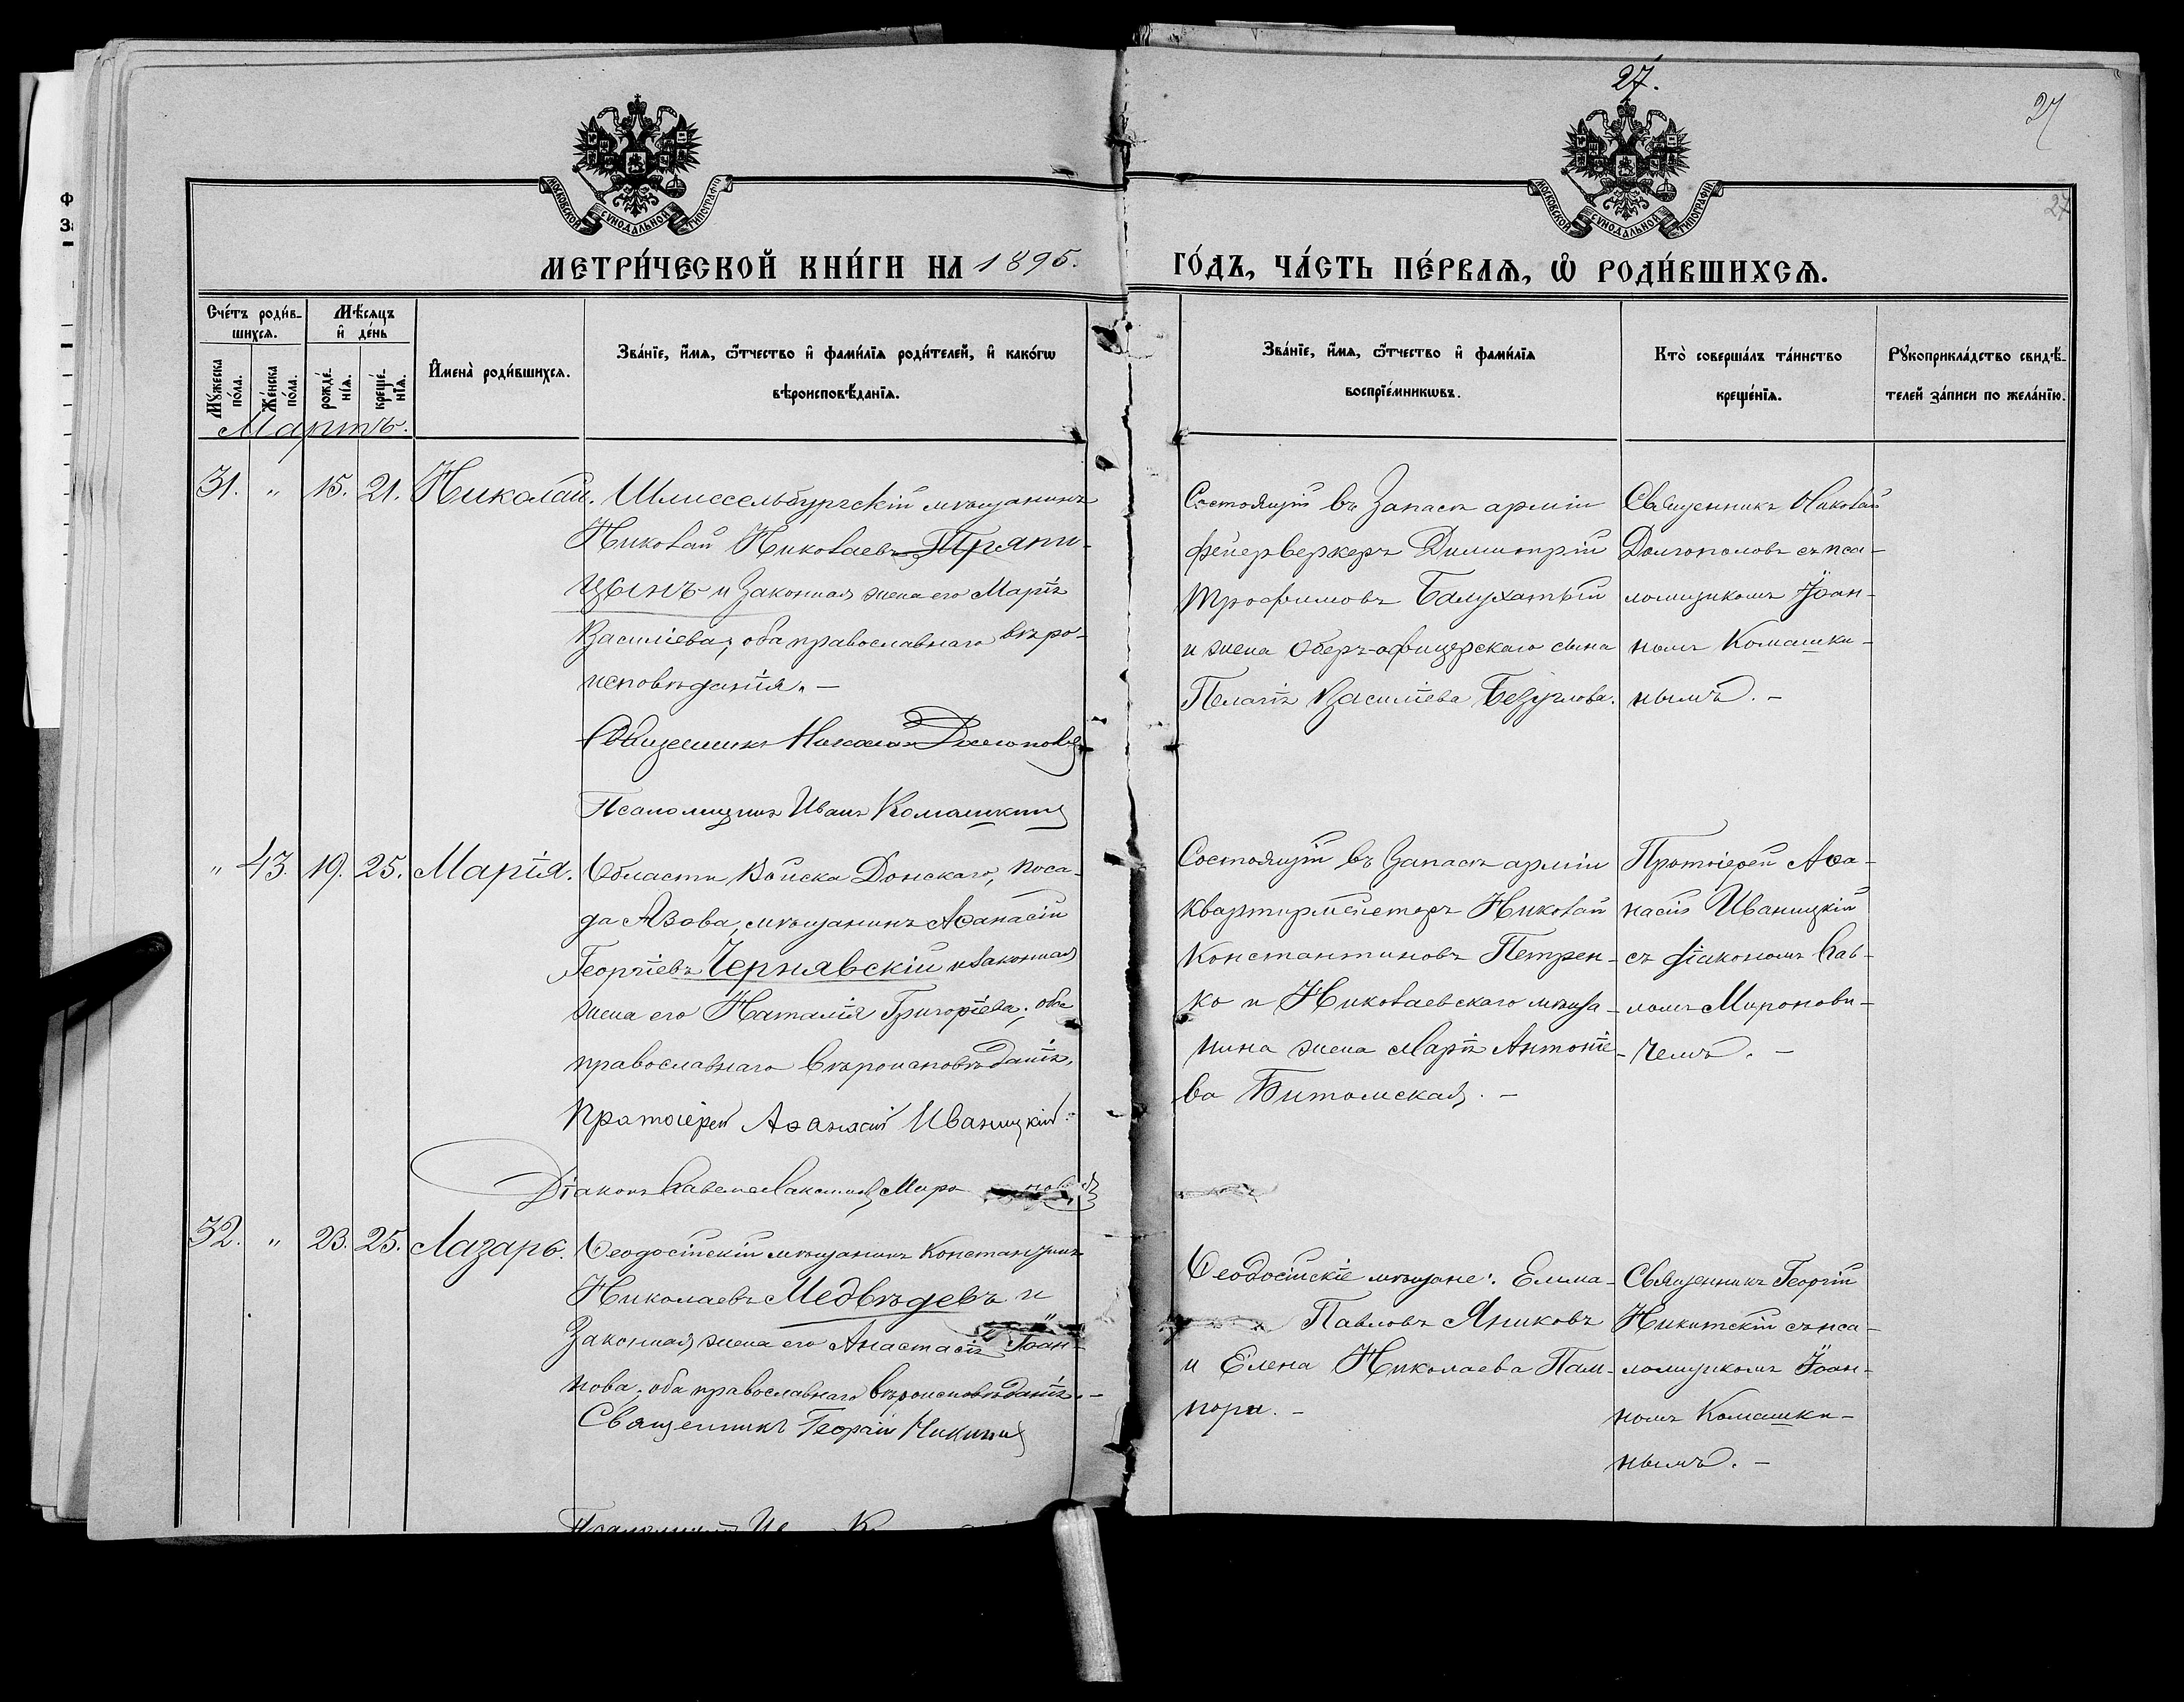 27.
27
27
МОСКОВСКОЙ СУНОДАЛЬНОЙ ТИПОГРАФІИ
МОСКОВСКОЙ СУНОДАЛЬНОЙ ТИПОГРАФІИ
МЕТРИ́ЧЕСКОЙ КНИ́ГИ НА 1895.
ГО́ДЪ, ЧА́СТЬ ПЕ́РВАѦ, Ѽ РОДИ́ВШИХСѦ.
Сче́тъ роди́в-
шихсѧ.
Мꙋ́жеска
по́ла.
Же́нска
по́ла.
Мѣ́сѧцъ
и҆ де́нь
рожде́-
нїѧ.
креще́-
нїѧ.
И҆мена̀ роди́вшихсѧ.
Зва́нїе, и҆́мѧ, ѻ҆́тчество и҆ фами́лїѧ роди́телей, и҆ како́гѡ
вѣроисповѣ́данїѧ.
Зва́нїе, и҆́мѧ, ѻ҆́тчество и҆ фами́лїѧ
воспрїе́мникѡвъ.
Кто̀ соверша́лъ та́инство
креще́нїѧ.
Рꙋкоприкла́дство свидѣ́-
телей за́писи по жела́нїю.
Мартъ.
31. " 15. 21. Николай.
Шлиссельбургскій мѣщанинъ
Николай Николаевъ Пряни-
цынъ и законная жена его Марія
Василіева; оба православнаго вѣро-
исповѣданія. –
Священникъ Николай Долгополовъ
Псаломщикъ Иванъ Комашкинъ
Состоящій въ запасѣ арміи
фейерверкеръ Димитрій
Трофимовъ Балухатый
и жена оберъ-офицерскаго сына
Пелагія Василіева Безуглова.
Священникъ Николай
Долгополовъ съ пса-
ломщикомъ Іоан-
номъ Комашки-
нымъ. –
" 43. 19. 25. Марія.
Области Войска Донскаго, поса-
да Азова, мѣщанинъ Аѳанасій
Георгіевъ Чернявскій и законная
жена его Наталія Григоріева; оба
православнаго вѣроисповѣданія.
Протоіерей Аѳанасій Иваницкій
Діаконъ Павелъ Миро
Состоящій въ запасѣ арміи
квартирмейстеръ Николай
Константиновъ Петрен-
ко и Николаевскаго мѣща-
нина жена Марія Антоніе-
ва Битомская. –
Протоіерей Аѳа-
насій Иваницкій
съ діакономъ Пав-
ломъ Миронови-
чемъ. –
32. " 23. 25. Лазарь.
Ѳеодосійскій мѣщанинъ Константинъ
Николаевъ Медвѣдевъ и
законная жена его Анастасія Іоан-
нова; оба православнаго вѣроисповѣданія. –
Священникъ Георгій Никитскій
Ѳеодосійскіе мѣщане: Емма-
Павловъ Яниковъ
и Елена Николаева Пам-
пори. –
Священникъ Георгій
Никитскій съ пса-
ломщикомъ Іоан-
номъ Комашки-
нымъ. –